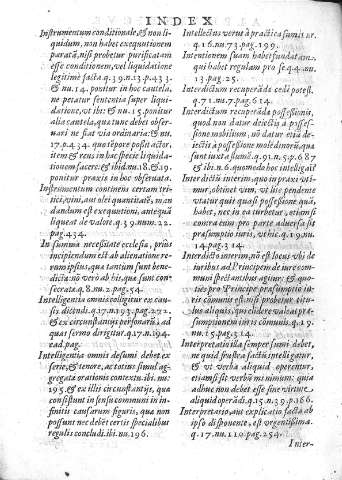 INDEX
Instrumentum conditionale, & non li-
quidum, non habet exequutionem
paratã, nisi probetur purificatam
esse conditionem, vel liquidatione
legitimè facta q.39.n.13.p.433.
& nu.14. ponitur in hoc cautela,
ne petatur sententia super liqui-
datione, vt ibi: & nu.15. ponitur
alia cautela, quæ tunc debet obser-
uari ne fiat via ordinaria: & nu.
17.p.434. quo tẽpore possit actor,
item & reus in hac specie liquida-
tionem facere: & ibid nu.18. & 19.
ponitur praxis in hoc obseruata.
Instrumentum continens certam tri-
tici, vini, aut olei quantitatẽ, man-
dandum est exequutioni, antequã
liqueat de valore q.39.num.22.
pag.434.
In summa necessitate ecclesia, prius
incipiendum est ab alienatione re-
rum ipsius, quæ tantùm sunt bene-
dictæ: nõ verò ab his, quæ sunt con-
secratæ. q.8.nu.2.pag.54.
Intelligentia omnis colligitur ex cau-
sis dictindi. q.17.nu.193.pag.272.
& ex circunstantijs personarũ, ad
quas sermo dirigitur. q.17.n.194.
ead.pag.
Intelligentia omnis desumi debet ex
serie, & tenore, ac totius simul ag-
gregatæ orationis contextu. ibi. nu.
195. & ex illis circunstantijs, quæ
consistunt in sensu communi in in-
finitis causarum figuris, quæ non
possunt nec debẽt certis specialibus
regulis concludi. ibi. nu.196.
Intellectus veri à practica sumitur.
q.16.nu.73.pag.199.
Intentionem suam habet fundatam,
qui habet regulam pro se q.4.nu.
13.pag.25.
Interdictum recuperãdæ cedit petit.
q.71.nu.7.pag.614.
Interdictũ recuperãdæ possessionis,
quod ius datur deiectis à posses-
sione mobilium, nõ datur etiã de-
iectis à possessione molẽdinorũ, quæ
sunt iuxta flumẽ. q.91.n.5.p.687
& ibi n.6. quomodo hoc intelligatur.
Interdictũ interim, quo in praxi vti-
mur, obtinet vim, vt lite pendente
vtatur quis quasi possessione quã
habet, nec in ea turbetur, etiam si
contra eum pro parte aduersa sit
præsumptio iuris, vt hic. q.19.nu.
14.pag.314.
Interdicto interim, nõ est locus vbi de
iuribus ad Principem de iure com-
muni spectantibus agitur: & quo-
ties pro Principe præsumptio iu-
ris cõmunis est, nisi probetur titu-
lus aliquis, qui elidere valeat præ-
sumptionem iuris cõmunis. q.19.
nu.15.pag.314.
Interpretatio illa semper sumi debet,
ne quid frustra factũ intelligatur,
& vt verba aliquid operentur,
etiam si sit verbũ minimum. quia
adhuc non debet esse sine virtute
aliquid operãdi. q.15.n.39.p.166.
Interpretatio, aut explicatio facta ab
ipso disponente, est vrgentissima.
q.17.nu.110.pag.254.
Inter-